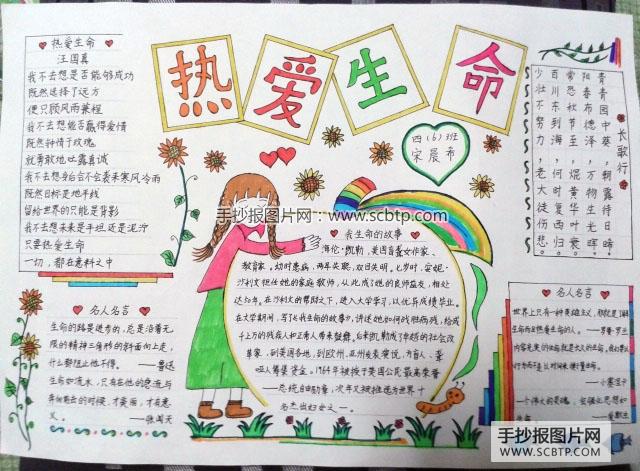 热爱生命
♥ 热爱生命 ♥
汪国真
我不去想是否能够成功
既然选择了远方
便只顾风雨兼程
我不去想能否赢得爱情
既然钟情于玫瑰
就勇敢地吐露真诚
我不去想身后会不会袭来寒风冷雨
既然目标是地平线
留给世界的只能是背影
我不去想未来是平坦还是泥泞
只要热爱生命
一切，都在意料之中
四(6)班
宋晨希
长歌行
青青园中葵，朝露待日晞
阳春布德泽，万物生光辉
常恐秋节至，焜黄华叶衰
百川东到海，何时复西归
少壮不努力，老大徒伤悲
手抄报图片网：www.scbtp.com
我生命的故事
海伦·凯勒，美国盲聋女作家、
教育家。幼时患病，两耳失聪，双目失明。七岁时，安妮·
沙利文担任她的家庭教师，从此成了她的良师益友，相处
达50年。在沙利文的帮助下，进入大学学习，以优异成绩毕业。
在大学期间，写了《我生命的故事》，讲述她如何战胜病残，给成
千上万的残疾人和正常人带来鼓舞。后来凯勒成了卓越的社会改
革家，到美国各地，到欧洲、亚洲发表演说，为盲人、聋
哑人筹集资金。1964年被授予美国公民最高荣誉
——总统自由勋章，次年又被推选为世界十
名杰出妇女之一。
名人名言
生命的路是进步的，总是沿着无
限的精神三角形的斜面向上走，
什么都阻止他不得。——鲁迅
生命如流水，只有在他的急流与
奔向前去的时候，才美丽，才有意
义。——张闻天
名人名言
世界上只有一种英雄主义，那就是了解
生命而且热爱生命的人。——罗曼·罗兰
——小塞涅卡
手抄报图片网
WWW.SCBTP.COM